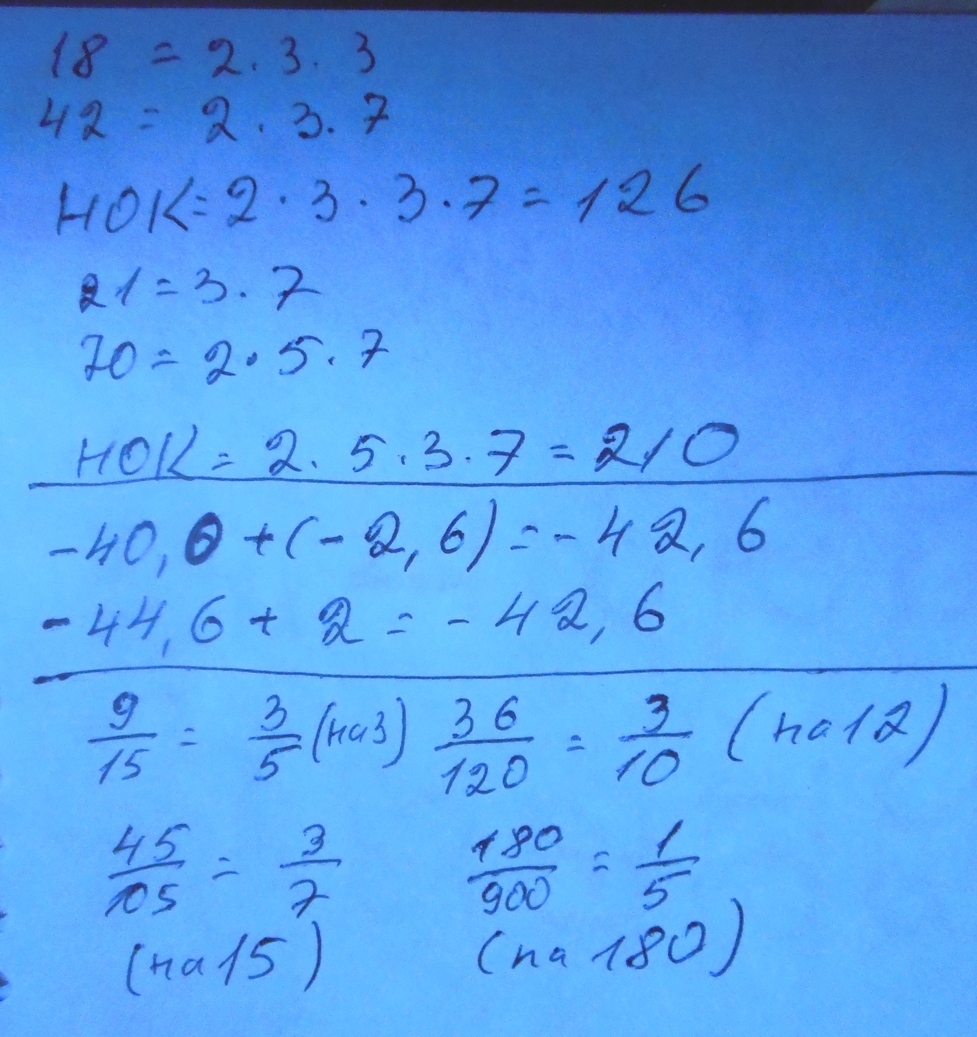 18 = 2 · 3 · 3
42 = 2 · 3 · 7
НОК = 2 · 3 · 3 · 7 = 126
21 = 3 · 7
70 = 2 · 5 · 7
НОК = 2 · 5 · 3 · 7 = 210
-40,0 + (-2,6) = -42,6
-44,6 + 2 = -42,6
9/15 = 3/5 (на3) 36/120 = 3/10 (на12)
45/105 = 3/7 180/900 = 1/5
(на15) (на 180)